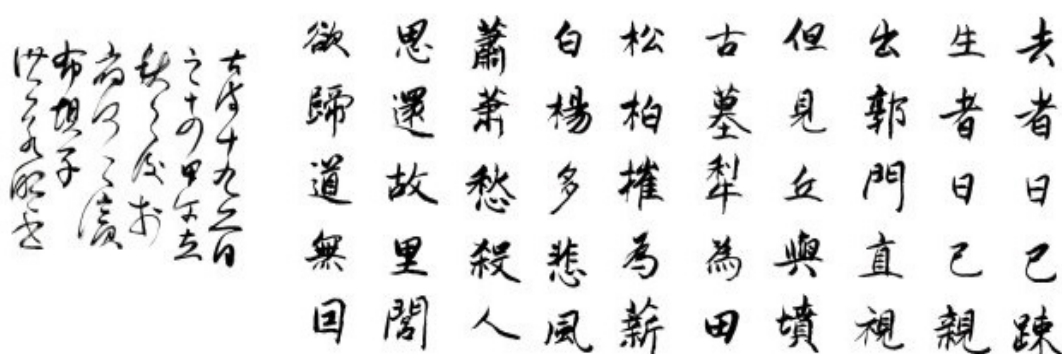 去者日已疎
生者日已親
出郭門直視
但見丘與墳
古墓犁為田
松柏摧為薪
白楊多悲風
蕭蕭愁殺人
思還故里閭
欲歸道無因
古詩十九首
之十四甲午立
秋之後於
河之濱
布子